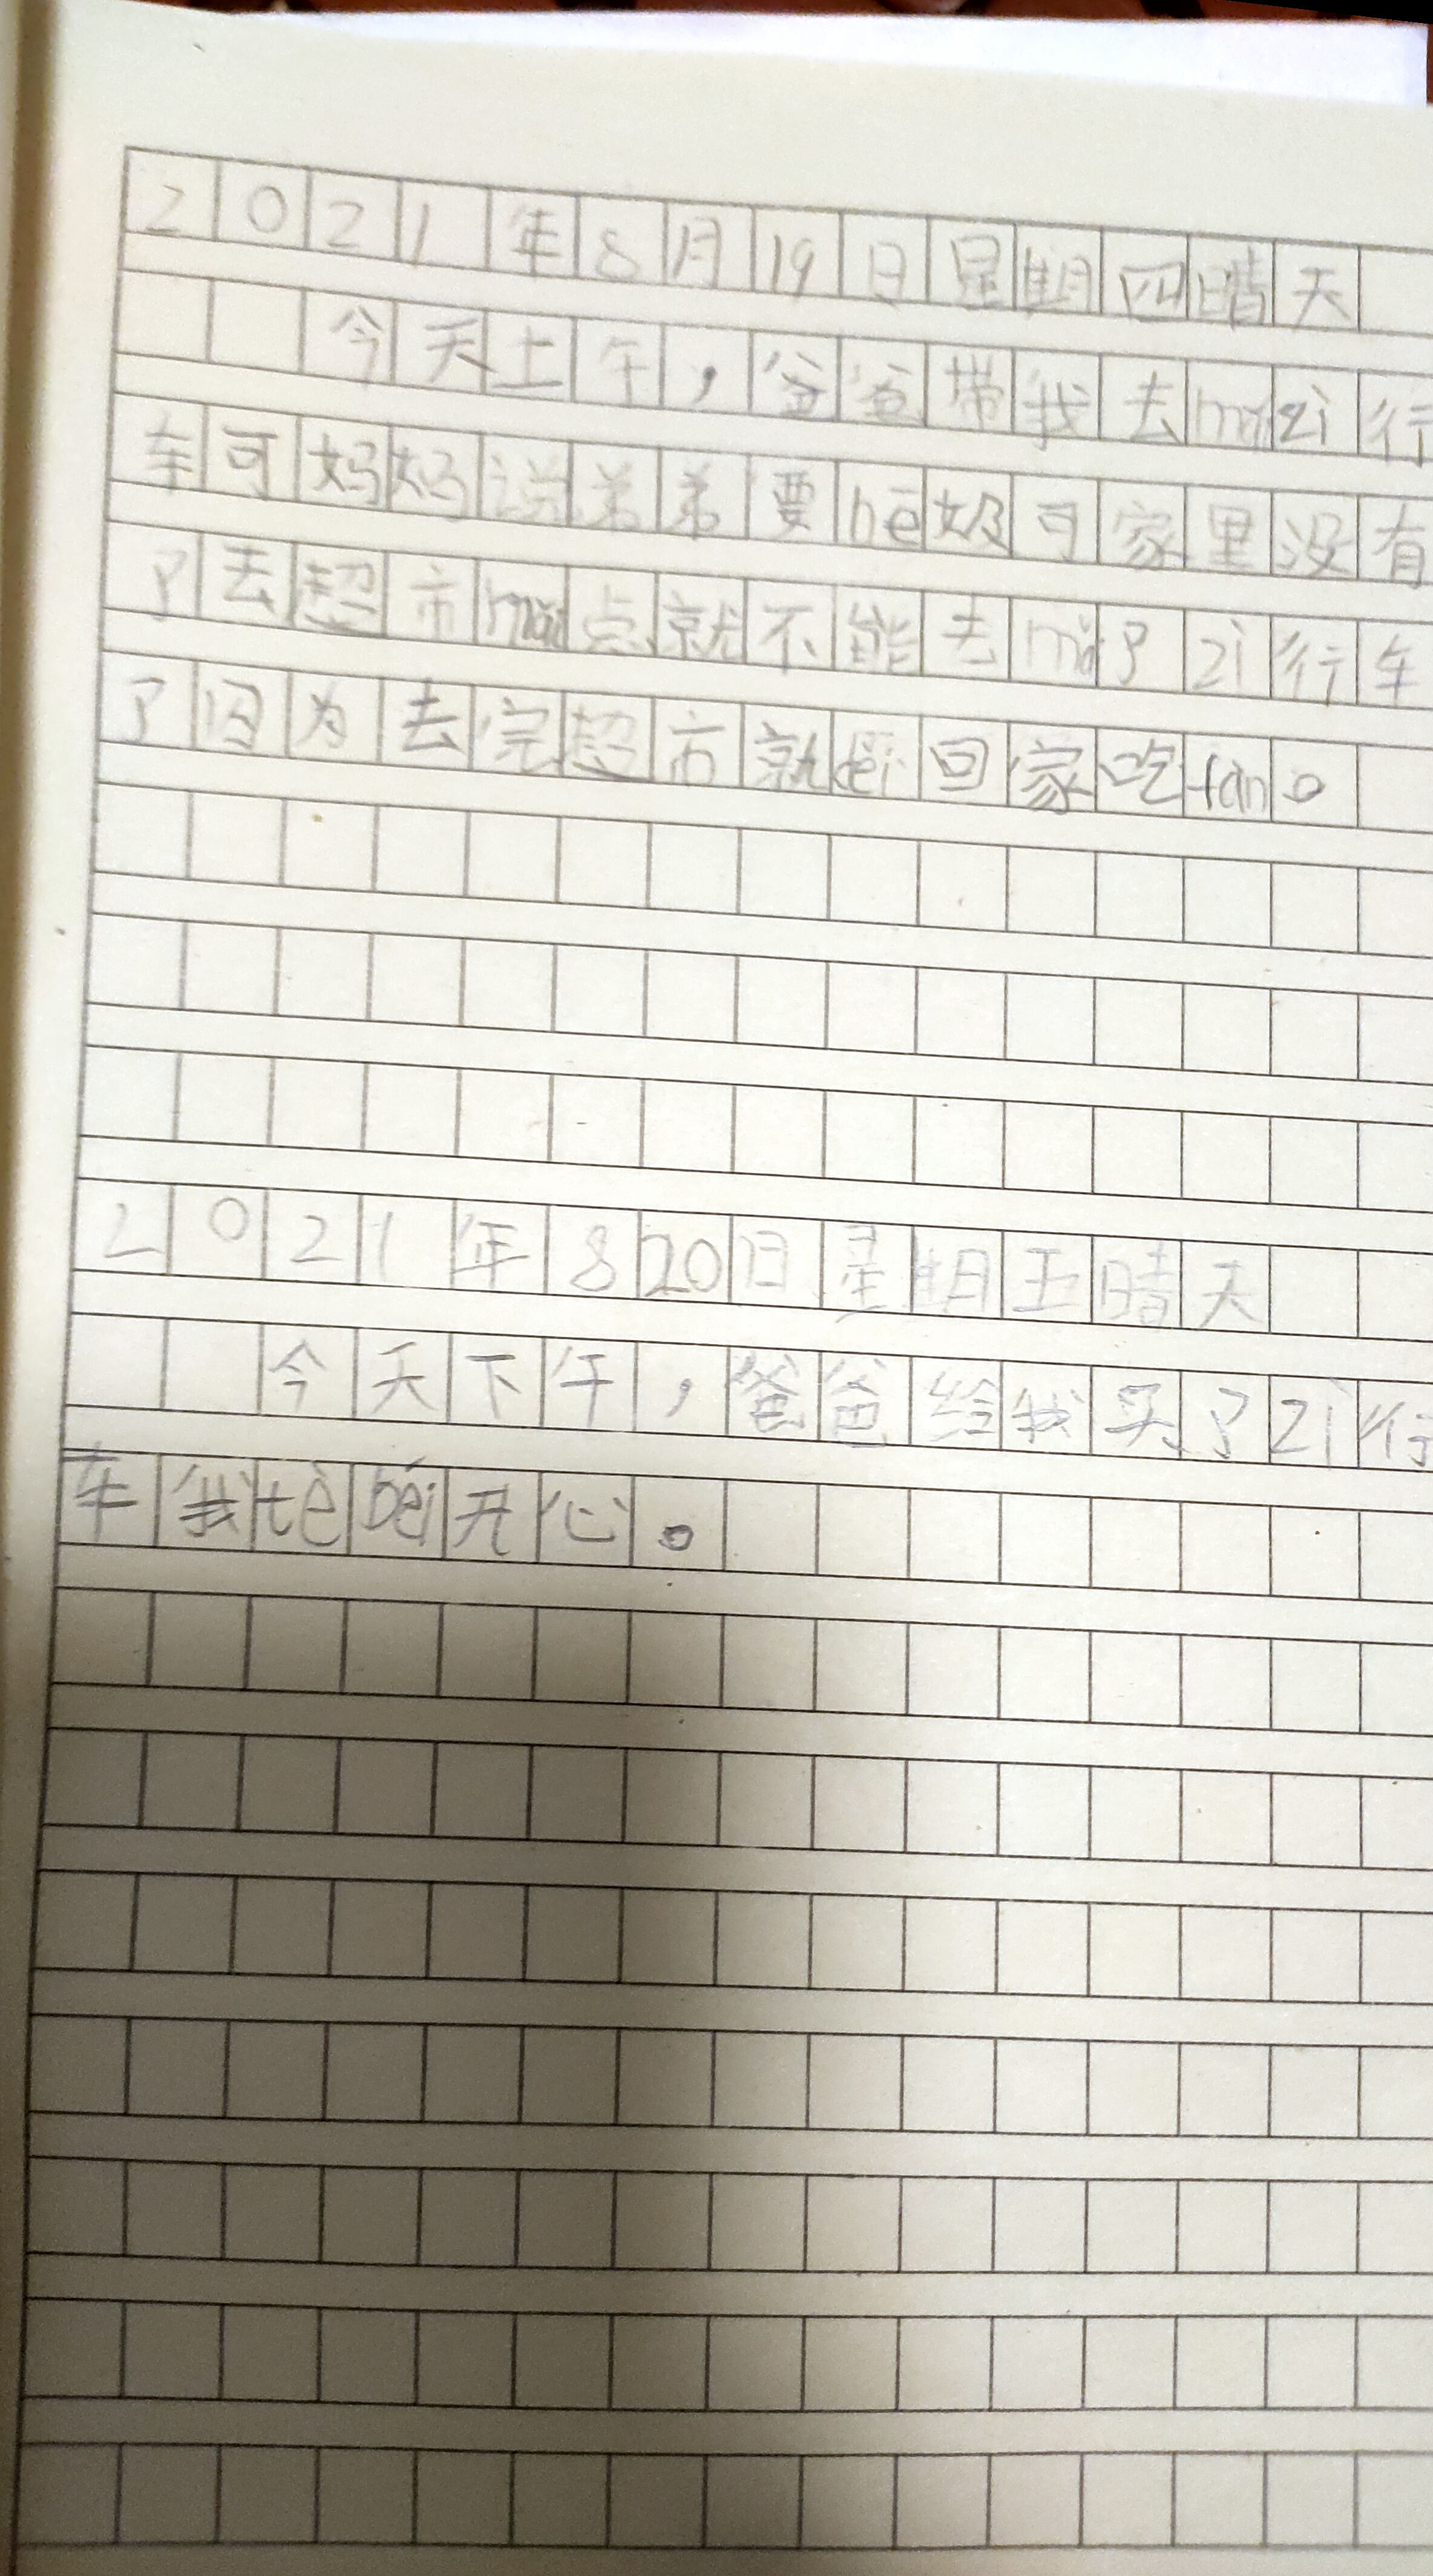 2021年8月19日星期四晴天
今天上午，爸爸带我去mǎizì行
车可妈妈说弟弟要hē奶可家里没有
了去超市mǎi点就不能去mǎi了zì行车
了因为去完超市就děi回家吃fàn。
2021年820日星期五晴天
今天下午，爸爸给我买了zì行
车我tèbéi开心。